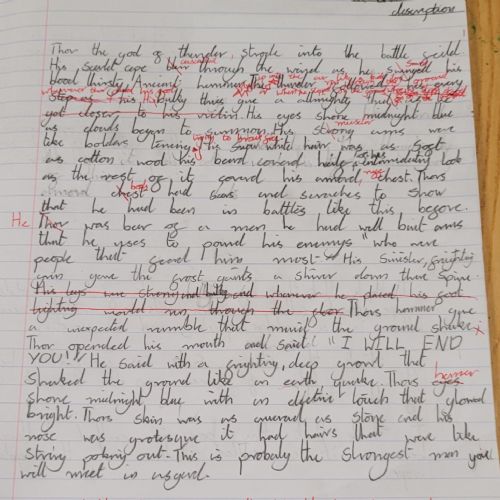 description
Thor the god of thunder, strople into the battle feild
His Scarlet cape through the wind as he swinged his
blood thirsty Ancient hammer. The thunder followed
Step as his bulky thise gave a almighty Thud
got closer to his victim. His eyes shone midnight blue
as clouds begun to summon. His strong arms were
like bolders tencing His snow white hair was as soft
as cotton wool his beard coverd intermediating look
as the rest of it coverd his armord, chest. Thors
almond chest had scars and scraches to show
that he had been in battles like this before.
He Thor was bear of a man he had well built arms
that he uses to pound his enemys who were
people that feard him most. His Sinister, frighting
grin gave the frost giants a shiver down there Spine.
His legs were strong and bulky and whenever he placed his foot
lighting would run through the floor Thors hammer gave
a unexpected rumble that made the ground shake
Thor opended his mouth and said "I WILL END
YOU!" He said with a frighting, deep growl that
Shaked the ground like an earth quake. Thors eyes hammer
Shone midnight blue with an electric touch that glowed
bright. Thors skin was as as stone and his
nose was grotesque it had hairs that were like
String poking out. This is probaly the Strongest man you
will meet in asgard.